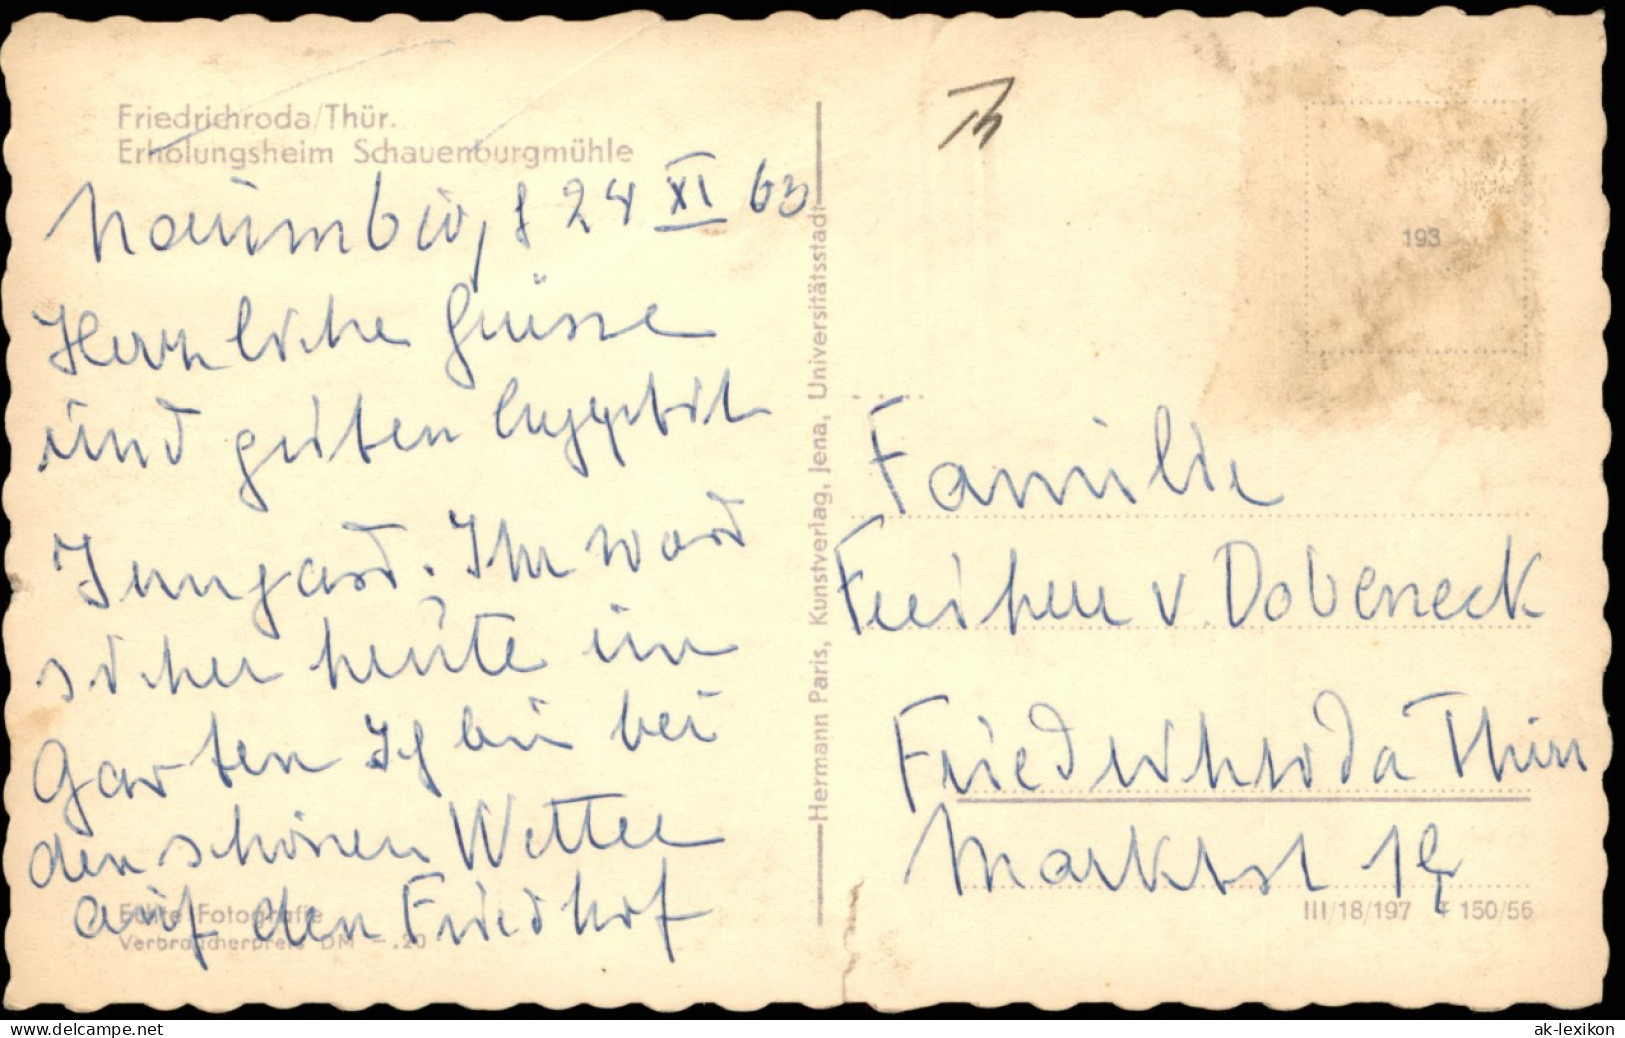 Friedrichroda/Thür.
Erholungsheim Schauenburgmühle
Naumbur, d 24 XI 63
Herzliche Grüsse
und guten Appetit
Irmgard. Ihr ward
sicher heute im
Garten Ich bin bei
den schönen Wetter
auf den Friedhof
Echte Fotografie
Verbraucherpreis DM -.20
Hermann Paris, Kunstverlag, Jena, Universitätsstadt
193
Familie
Freiherr v Dobeneck
Friedrichroda Thür
Marktst
III/18/197 F 150/56
www.delcampe.net
ak-lexikon